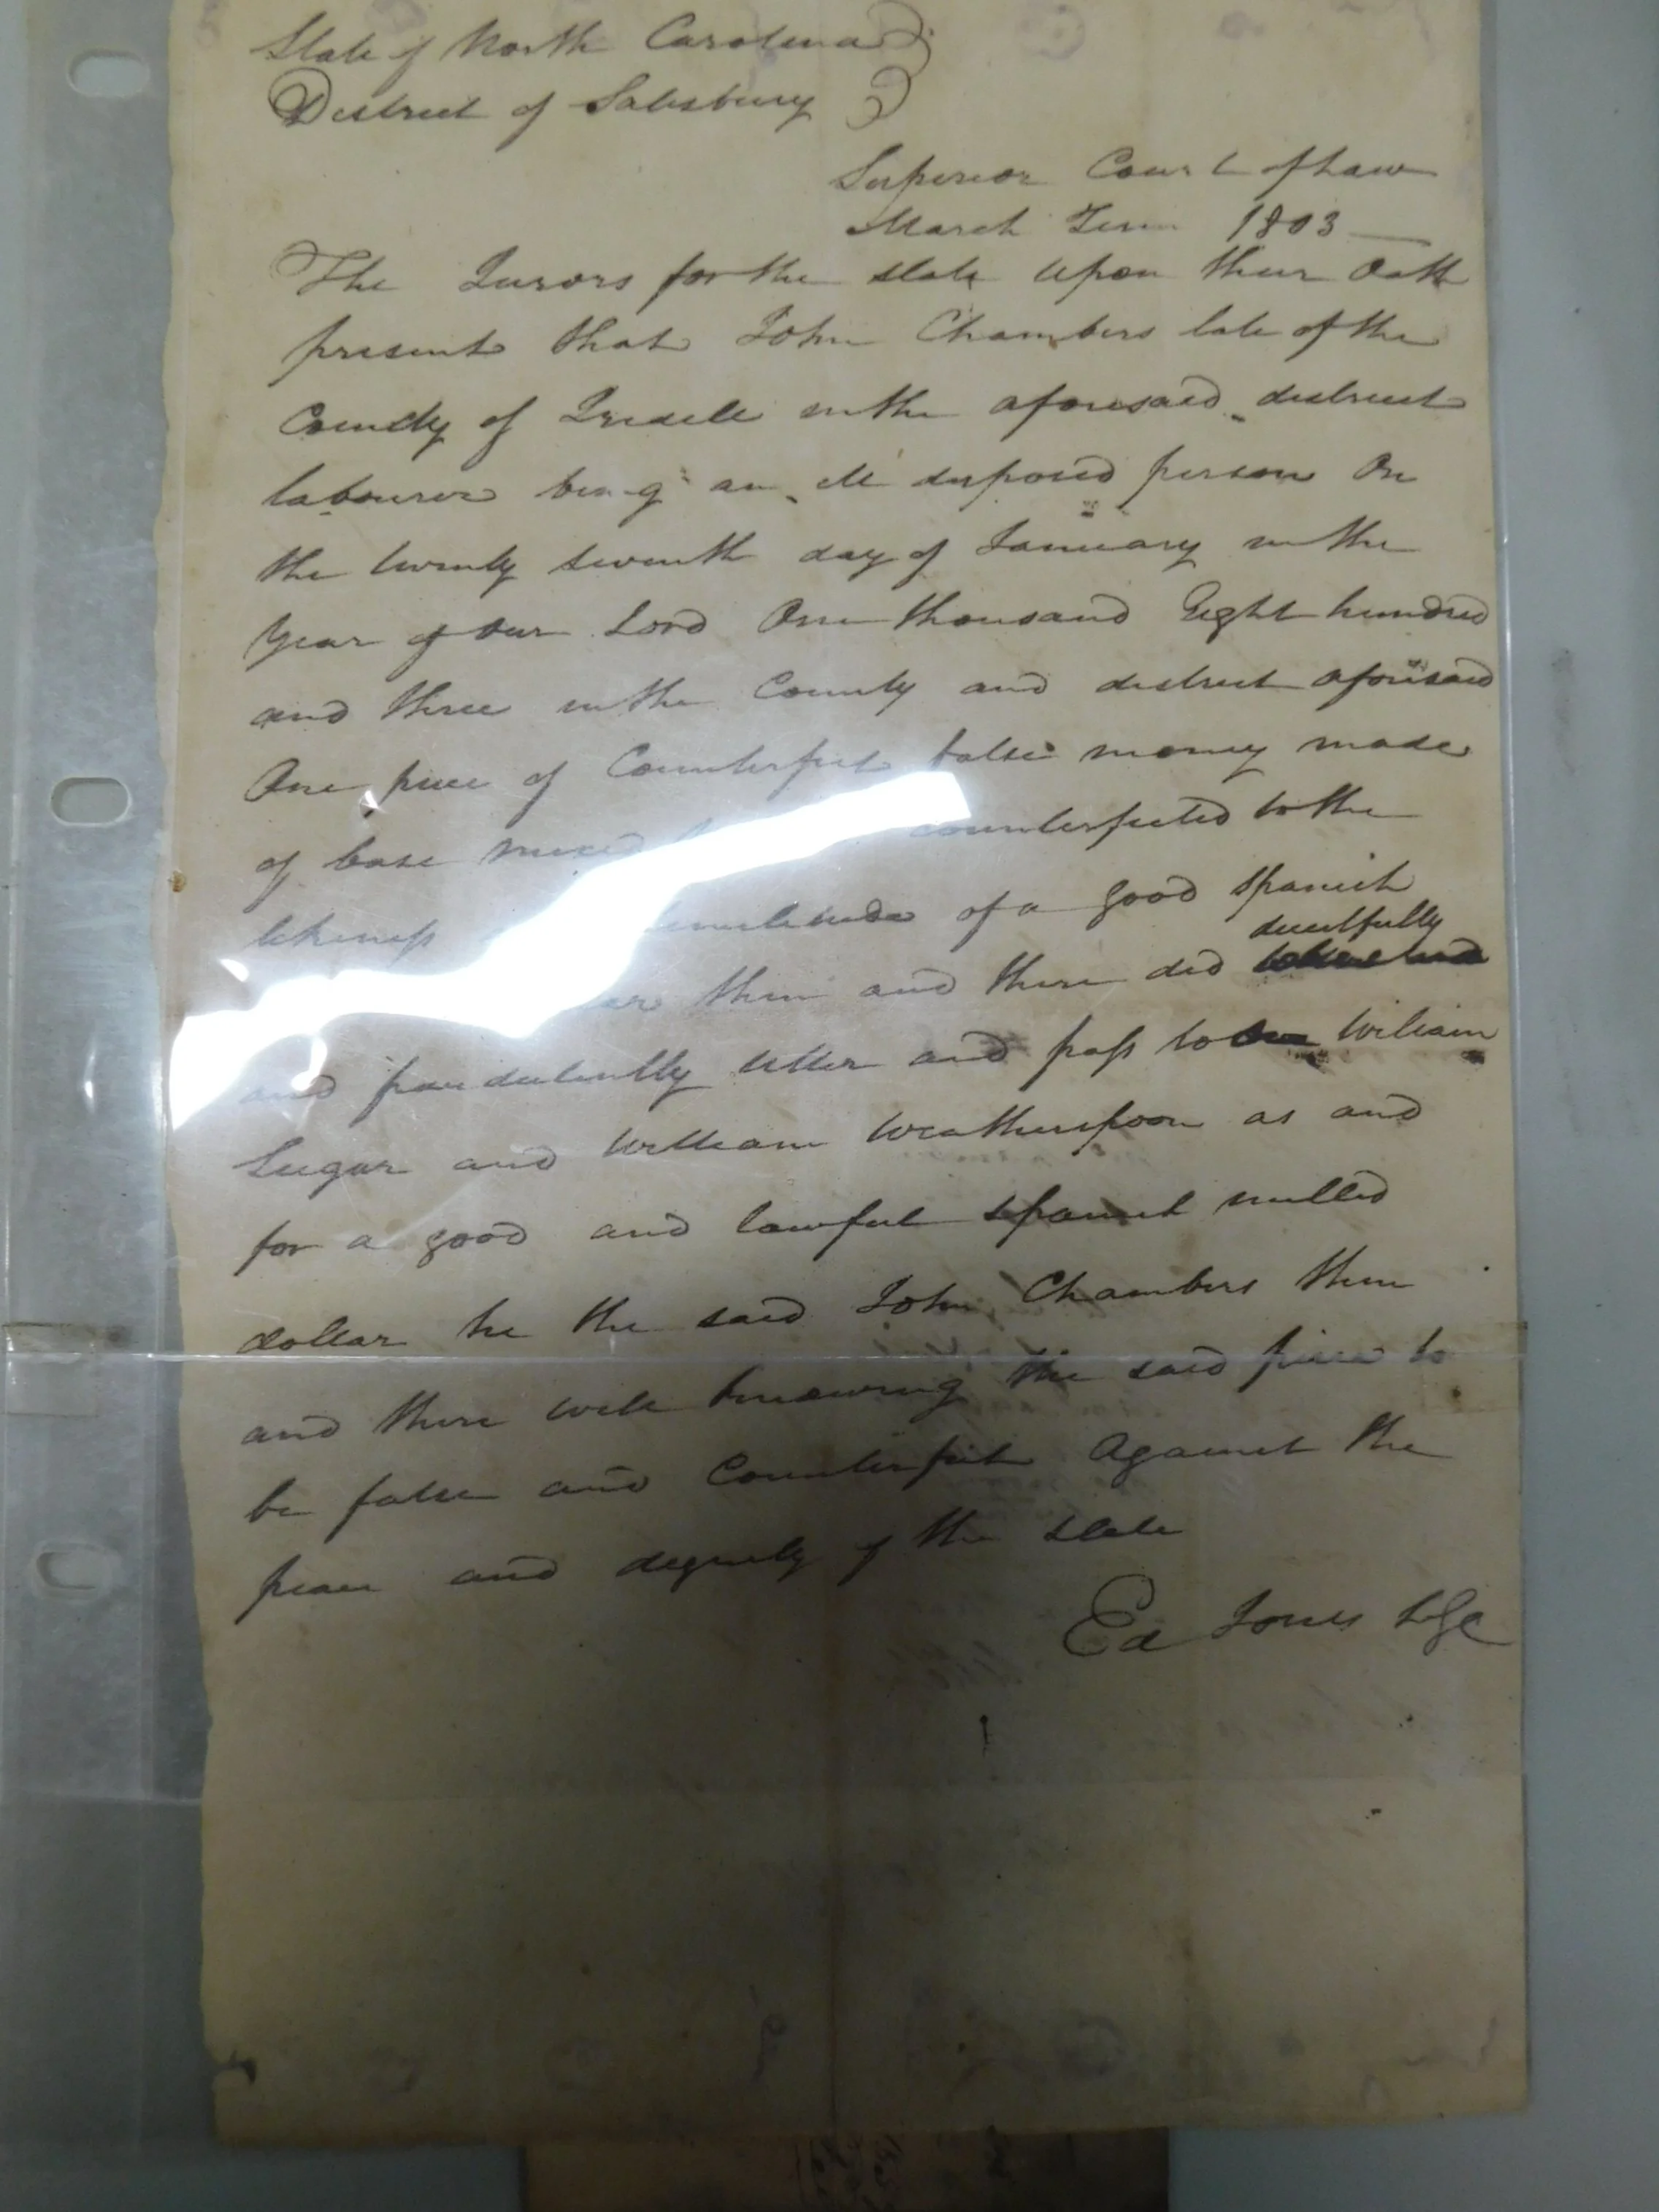 State of North Carolina
District of Salisbury
Superior Court of Law
March Term 1803
The Jurors for the state upon their Oath
present that John Chambers late of the
County of Iredell in the aforesaid district
labourer being an ill disposed person On
the twenty seventh day of January in the
Year of our Lord One thousand Eight hundred
and three in the County and district aforesaid
One piece of Counterfeit false money made
of base mixed counterfeited to the
likeness similitude of a good Spanish
deceitfully
then and there did
and fraudulently utter and pass to William
Sugar and William Weatherspoon as and
for a good and lawful Spanish milled
dollar he the said John Chambers then
and there well knowing the said piece to
be false and Counterfeit Against the
peace and dignity of the state
Ed Jones